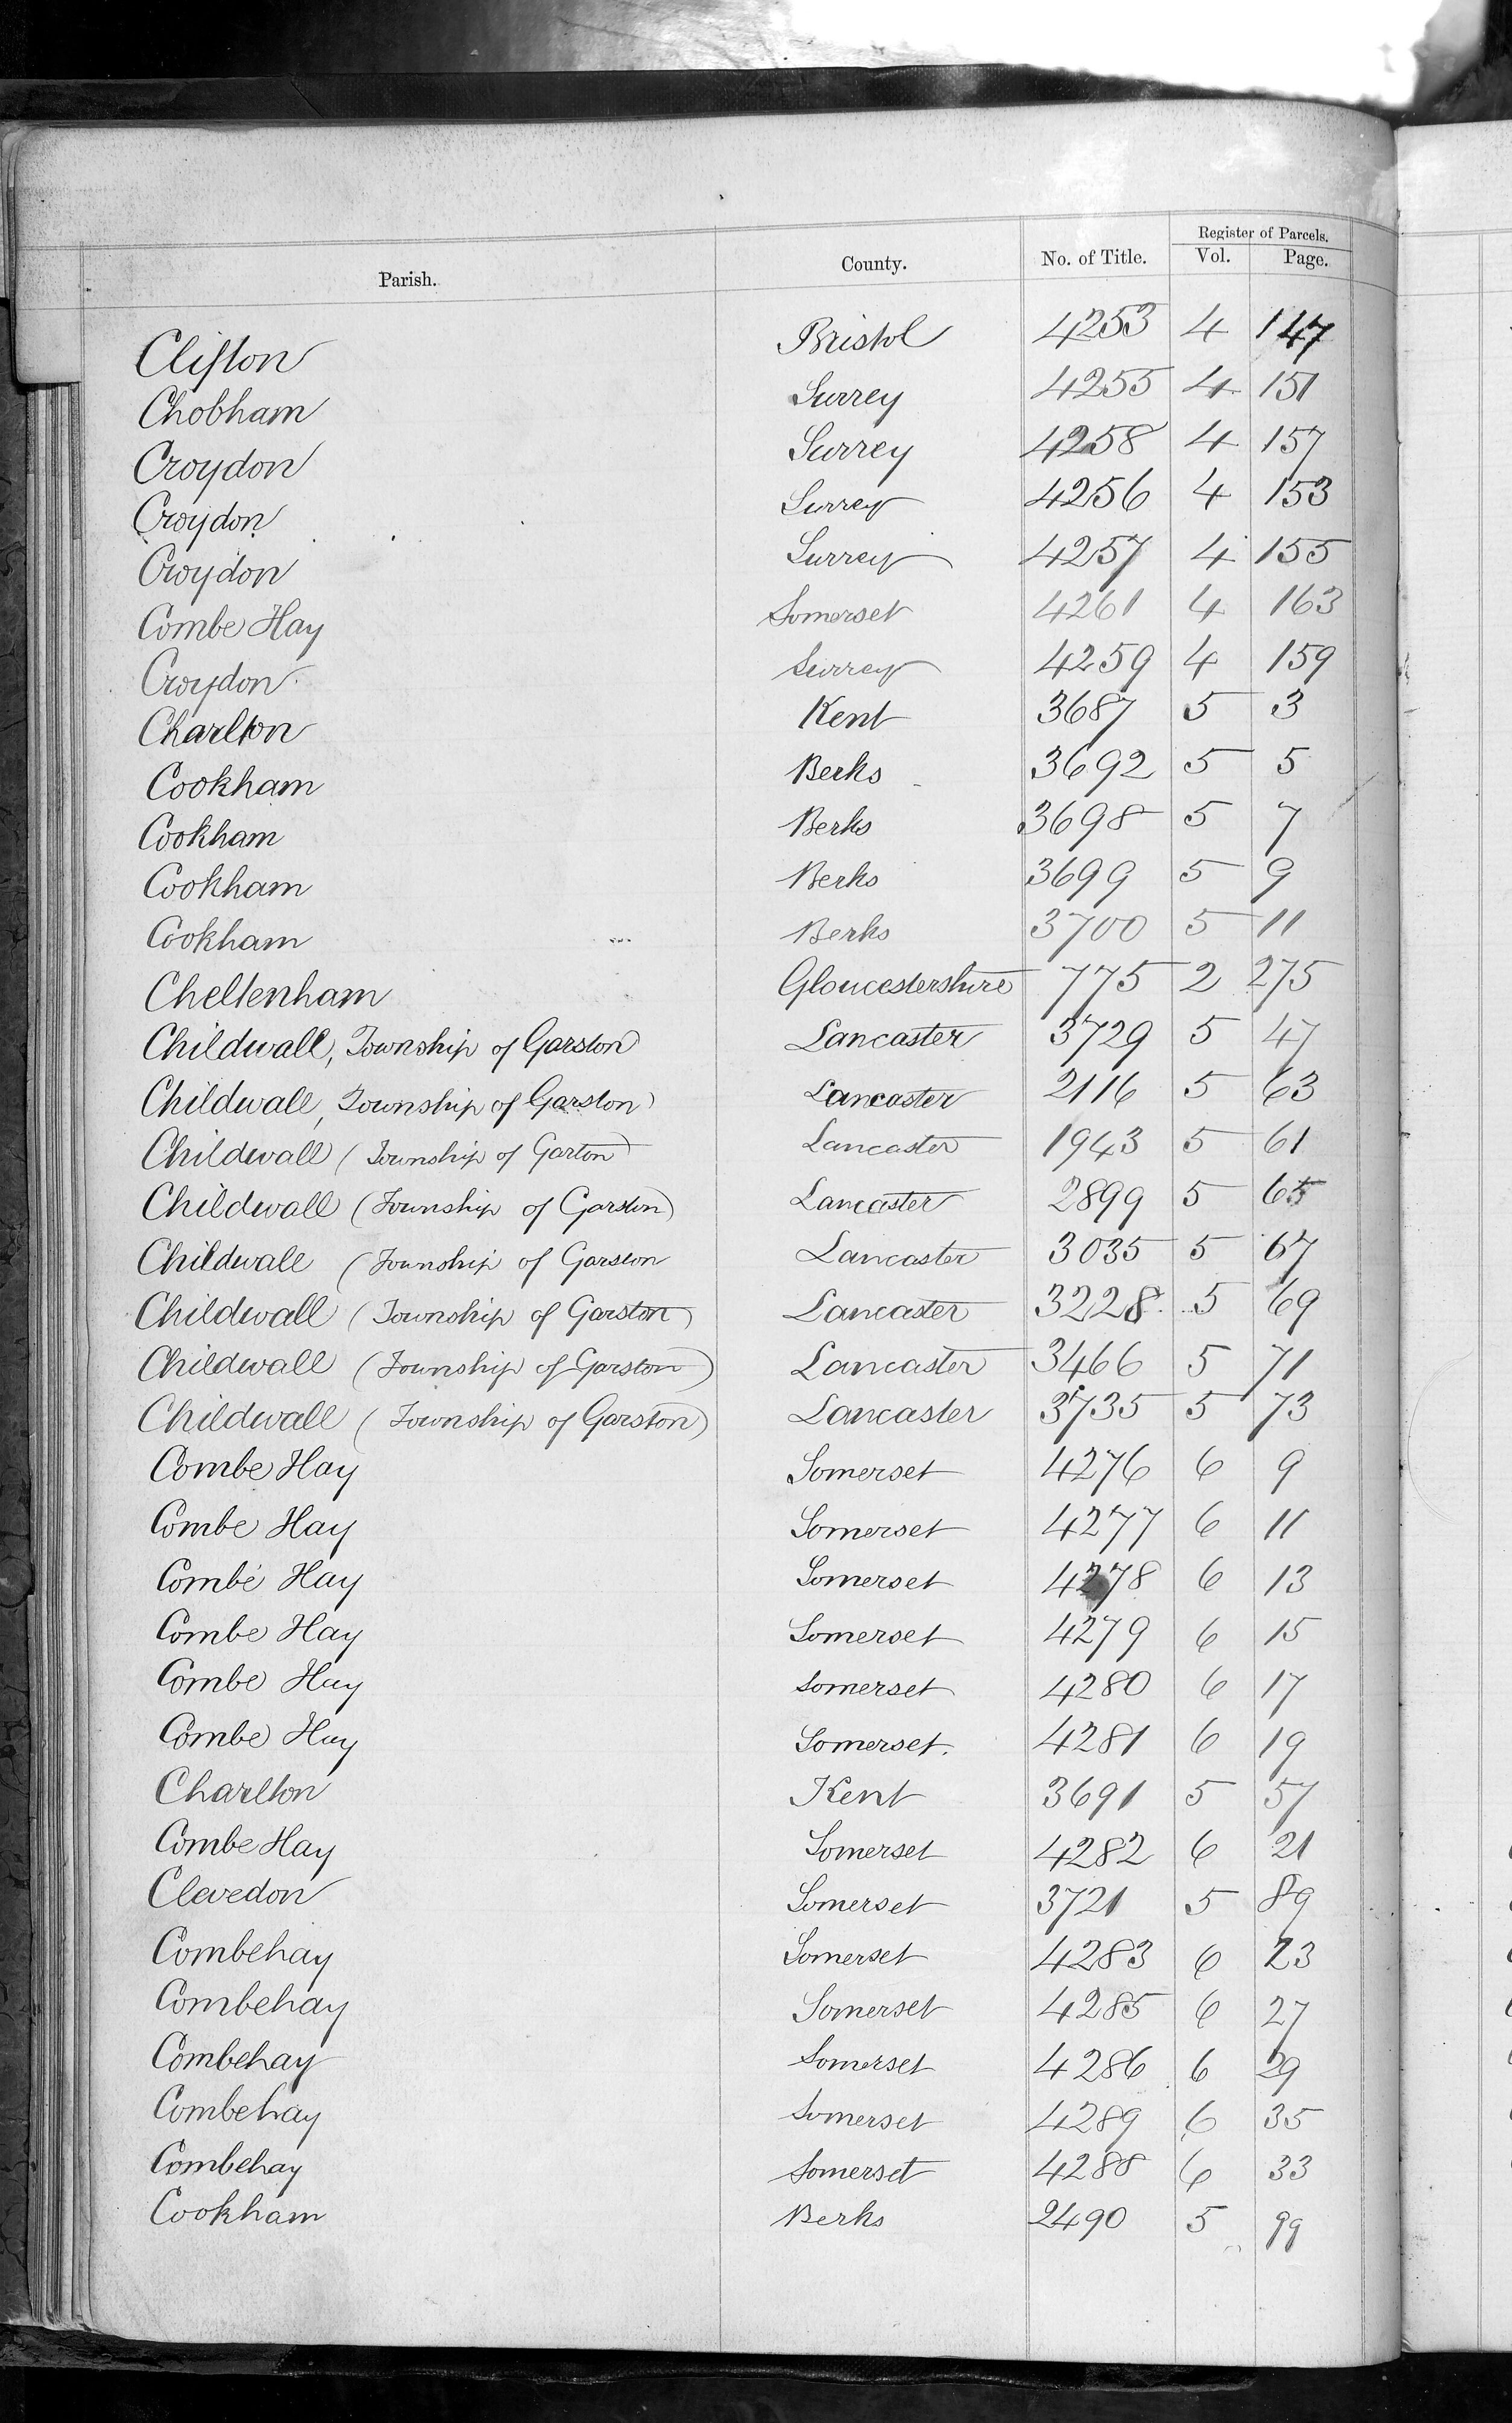 Register of Parcels.
Parish. County. No. of Title. Vol. Page.
Clifton Bristol 4253 4 147
Chobham Surrey 4255 4 151
Croydon Surrey 4258 4 157
Croydon Surrey 4256 4 153
Croydon Surrey 4257 4 155
Combe Hay Somerset 4261 4 163
Croydon Surrey 4259 4 159
Charlton Kent 3687 5 3
Cookham Berks 3692 5 5
Cookham Berks 3698 5 7
Cookham Berks 3699 5 9
Cookham Berks 3700 5 11
Cheltenham Gloucestershire 775 2 275
Childwall, Township of Garston Lancaster 3729 5 47
Childwall, Township of Garston Lancaster 2116 5 63
Childwall (Township of Garton) Lancaster 1943 5 61
Childwall (Township of Garston) Lancaster 2899 5 65
Childwall (Township of Garston Lancaster 3035 5 67
Childwall (Township of Garston) Lancaster 3228 5 69
Childwall (Township of Garston) Lancaster 3466 5 71
Childwall (Township of Garston) Lancaster 3735 5 73
Combe Hay Somerset 4276 6 9
Combe Hay Somerset 4277 6 11
Combe Hay Somerset 4278 6 13
Combe Hay Somerset 4279 6 15
Combe Hay Somerset 4280 6 17
Combe Hay Somerset. 4281 6 19
Charlton Kent 3691 5 57
Combe Hay Somerset 4282 6 21
Clevedon Somerset 3721 5 89
Combehay Somerset 4283 6 23
Combehay Somerset 4285 6 27
Combehay Somerset 4286 6 29
Combehay Somerset 4289 6 35
Combehay Somerset 4288 6 33
Cookham Berks 2490 5 99